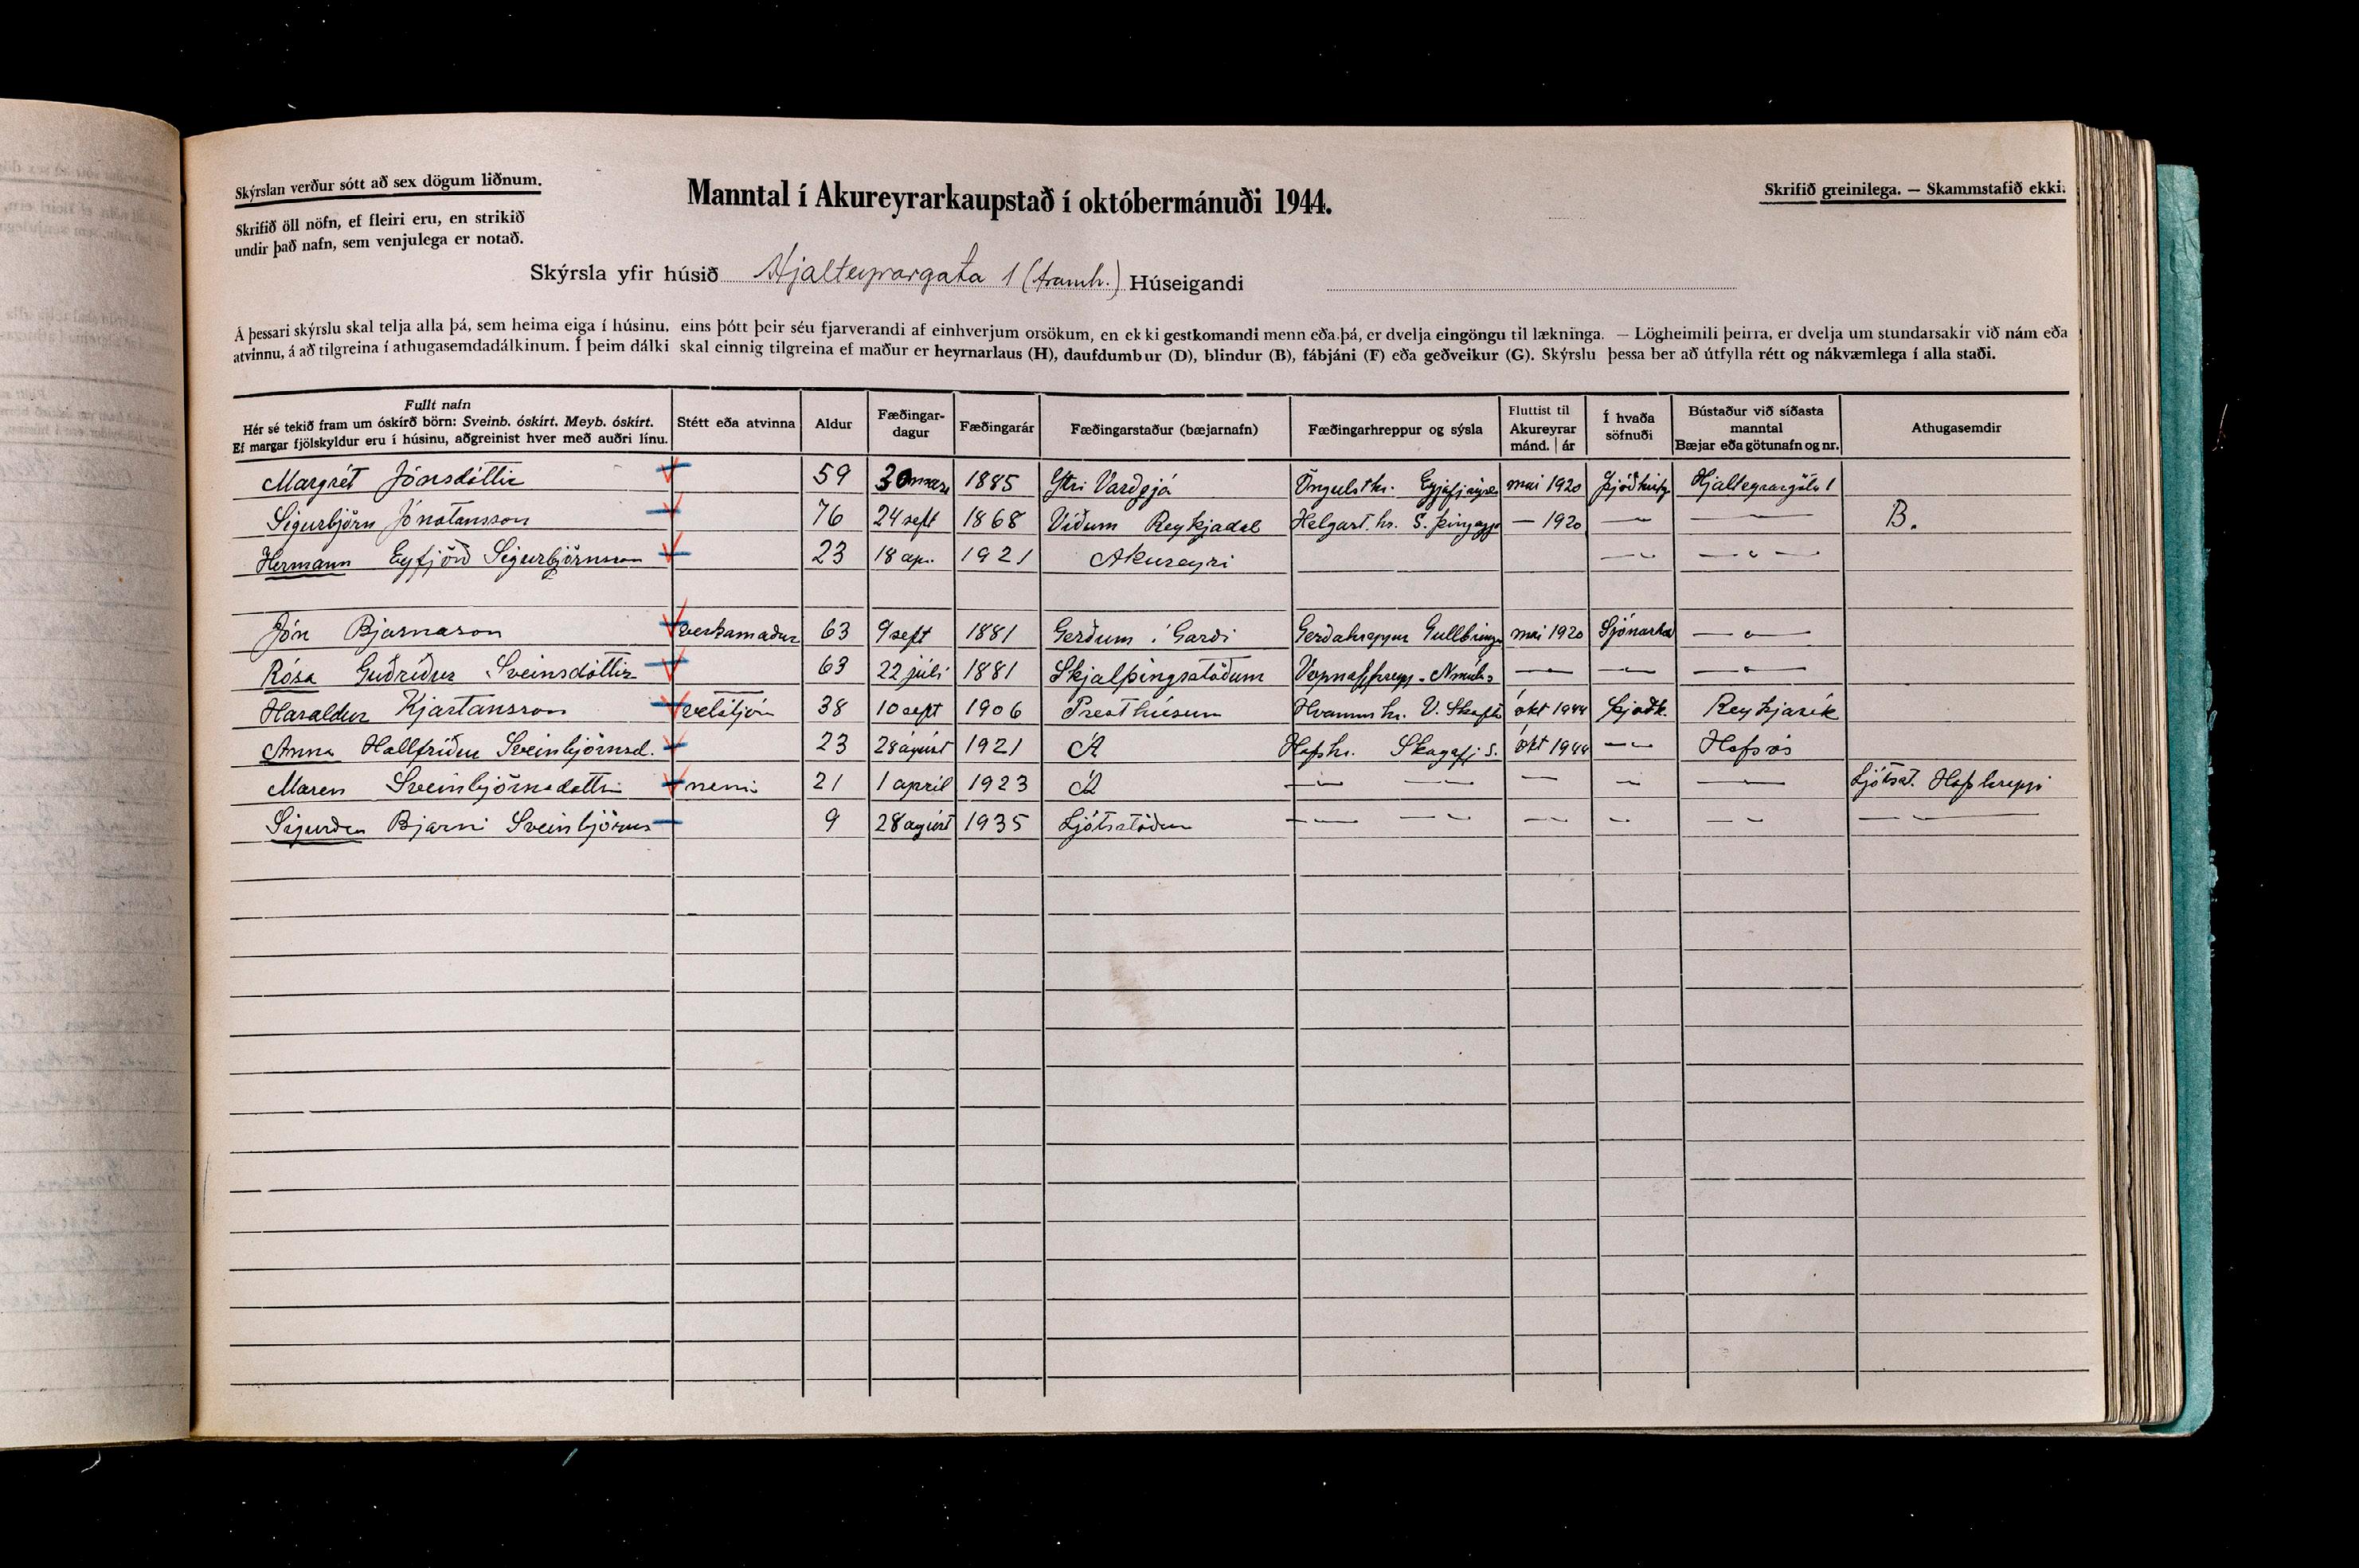 Skýrslan verður sótt að sex dögum liðnum.
Skrifið öll nöfn, ef fleiri eru, en strikið
undir það nafn, sem venjulega er notað.
Manntal í Akureyrarkaupstað í októbermánuði 1944.
Skrifið greinilega. — Skammstafið ekki.
Skýrsla yfir húsið Hjalteyrargata 1 (framh.) Húseigandi
Á þessari skýrslu skal telja alla þá, sem heima eiga í húsinu, eins þótt þeir séu fjarverandi af einhverjum orsökum, en ekki gestkomandi menn eða þá, er dvelja eingöngu til lækninga. — Lögheimili þeirra, er dvelja um stundarsakir við nám eða
atvinnu, á að tilgreina í athugasemdadálkinum. Í þeim dálki skal einnig tilgreina ef maður er heyrnarlaus (H), daufdumbur (D), blindur (B), fábjáni (F) eða geðveikur (G). Skýrslu þessa ber að útfylla rétt og nákvæmlega í alla staði.
Fullt nafn
Hér sé tekið fram um óskírð börn: Sveinb. óskírt. Meyb. óskírt.
Ef margar fjölskyldur eru í húsinu, aðgreinist hver með auðri línu.
Stétt eða atvinna
Aldur
Fæðingar-
dagur
Fæðingarár
Fæðingarstaður (bæjarnafn)
Fæðingarhreppur og sýsla
Fluttist til
Akureyrar
mánd. | ár
Í hvaða
söfnuði
Bústaður við síðasta
manntal
Bæjar eða götunafn og nr.
Athugasemdir
Margrét Jónsdóttir 59 30 mars 1885 Ytri Varðgjá Öngulst.hr. Eyjafj.sýsl. maí 1920 Hjalteyrargötu 1
Sigurbjörn Jónatansson 76 24 sept 1868 Víðum Reykjadal Helgast.hr. S. Þing — 1920 — — B.
Hermann Eyfjörð Sigurbjörnsson 23 18 ap. 1921 Akureyri — —
Jón Bjarnason verkamaður 63 9 sept 1881 Gerðum í Garði Gerðahreppur Gullbringu maí 1920 —
Rósa Guðríður Sveinsdóttir 63 22 júli 1881 Skjalþingsstöðum — — —
Haraldur Kjartansson vélstjóri 38 10 sept 1906 Presthúsum Hvamms hr. V. Skaft okt 1944 Þjóðk. Reykjavík
Anna Hallfríður Sveinbjörnsd. 23 28 ágúst 1921 Á Hofshr. Skagafj.s. okt 1944 — Hofsós
Maren Sveinbjörnsdóttir nemi 21 1 apríl 1923 Á — — — — — Ljótsst. Hofshreppi
Sigurður Bjarni Sveinbjörns 9 28 ágúst 1935 Ljótsstöðum — — — — — —